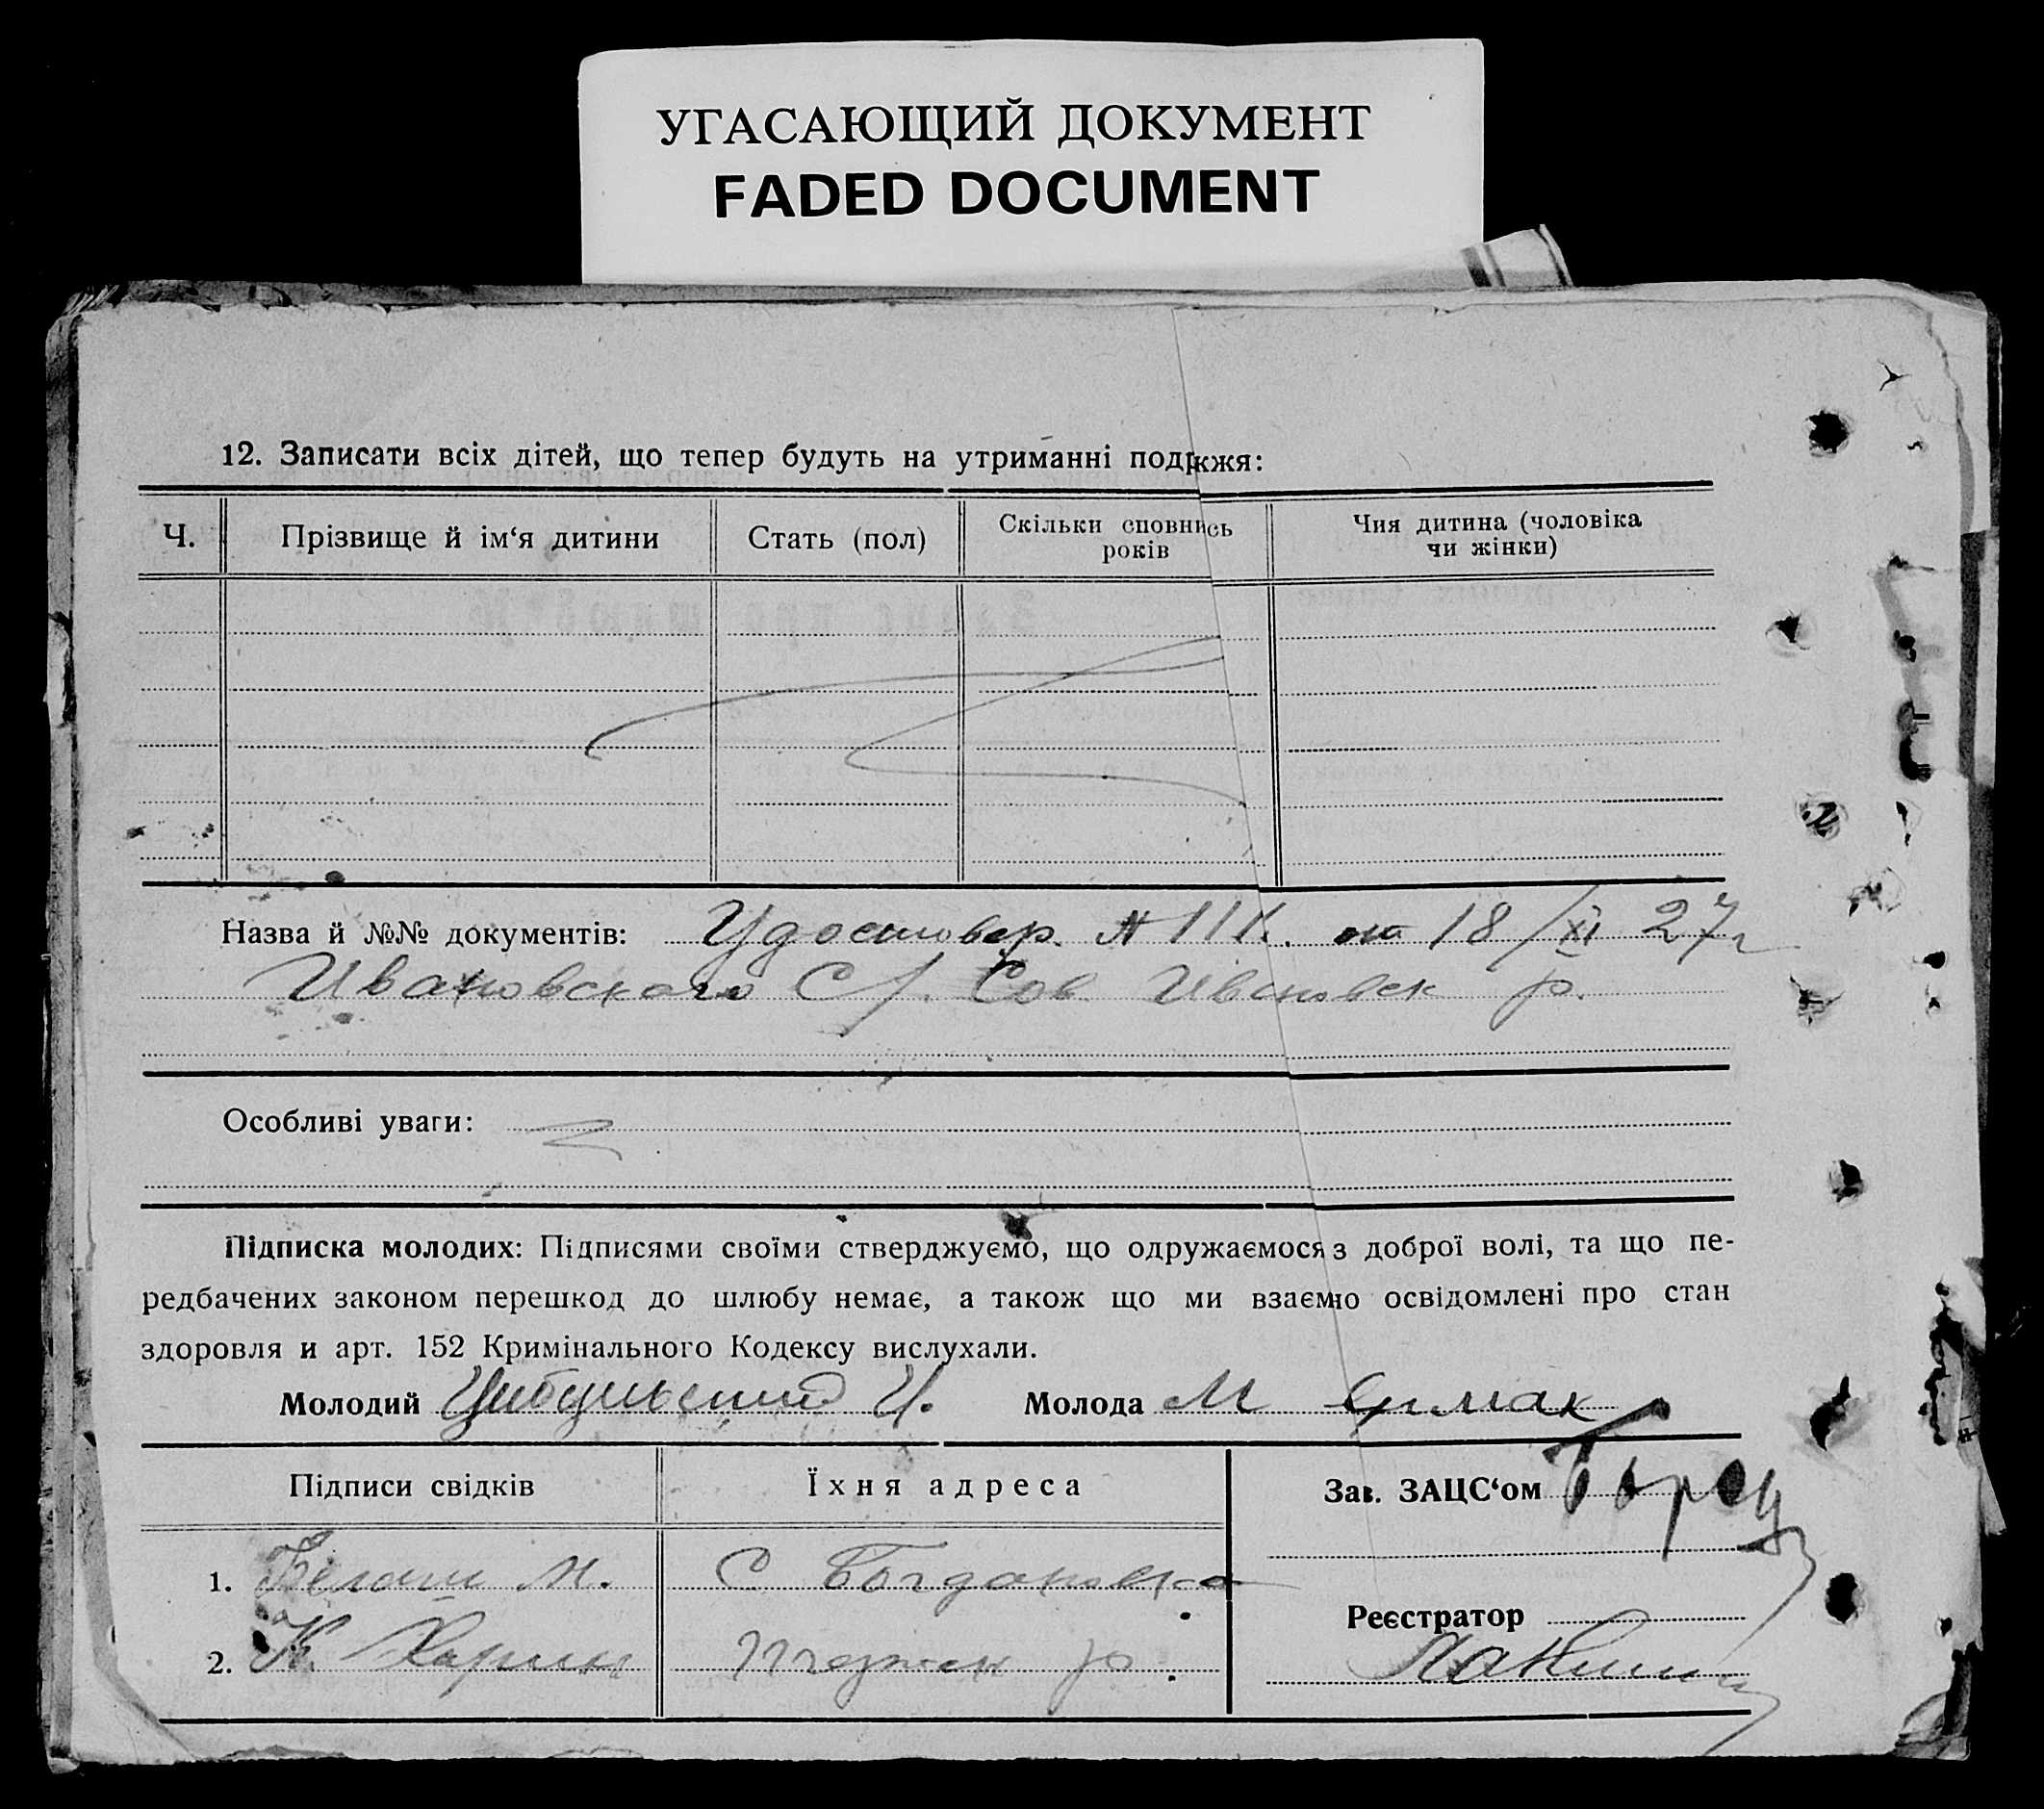 УГАСАЮЩИЙ ДОКУМЕНТ
FADED DOCUMENT
12. Записати всіх дітей, що тепер будуть на утриманні подружжя:
Ч. Прізвище й ім‘я дитини Стать (пол) Скільки сповнись років Чия дитина (чоловіка чи жінки)
Назва й №№ документів: Удостовер. № 111. от 18/XI 27 г
Ивановского С/. Сов Ивановск р.
Особливі уваги:
Підписка молодих: Підписями своїми стверджуємо, що одружаємося з доброї волі, та що пе-
редбачених законом перешкод до шлюбу немає, а також що ми взаємно освідомлені про стан
здоровля и арт. 152 Кримінального Кодексу вислухали.
Молодий Цибульский И. Молода М Ярмак
Підписи свідків Їхня адреса Зав. ЗАЦС‘ом
1. Белаш М. С. Богдановка
Реєстратор
2. К. р.